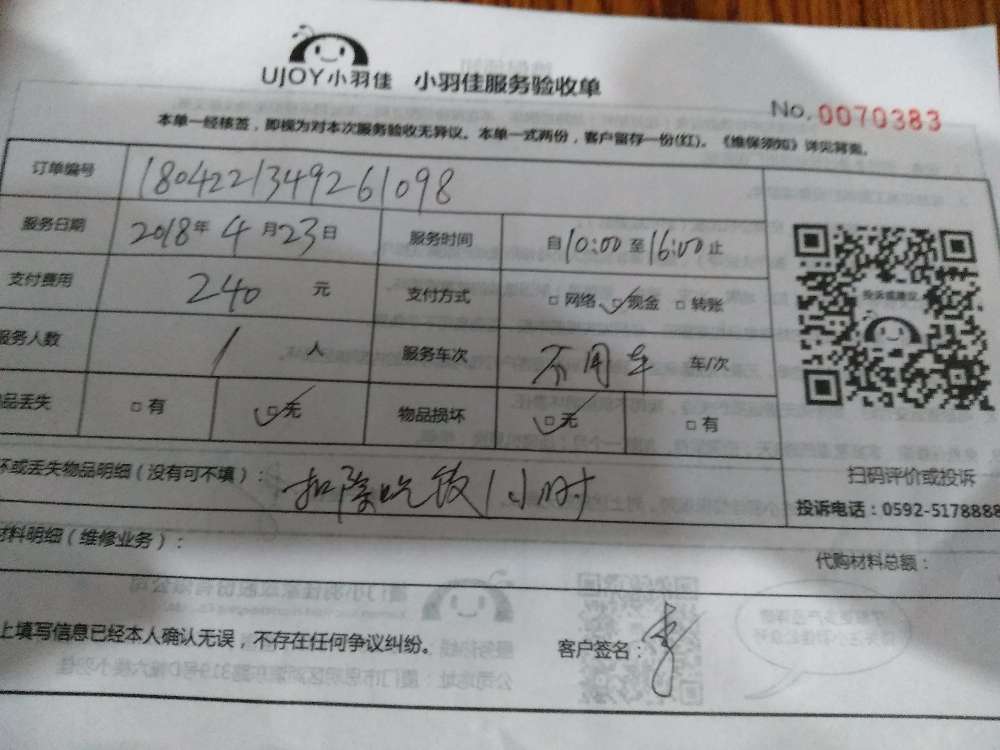 UJOY小羽佳 小羽佳服务验收单
No. 0070383
本单一经核签，即视为对本次服务验收无异议。本单一式两份，客户留存一份(红)。《维保须知》详见背面。
订单编号 180422134926109​8
服务日期 2018年4月23日 服务时间 自10:00至16:00止
支付费用 240 元 支付方式 □网络 □现金 □转账
服务人数 1 人 服务车次 不用车 车/次
品丢失 □有 □无 物品损坏 □无 □有
投诉或建议
坏或丢失物品明细（没有可不填）： 扣除吃饭1小时
扫码评价或投诉
投诉电话：0592-5178888
材料明细（维修业务）：
代购材料总额：
上填写信息已经本人确认无误，不存在任何争议纠纷。 客户签名：